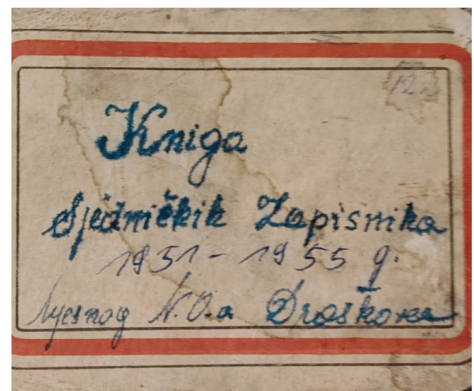 Kniga
Sjedničkih Zapisnika
1951-1955 g.
Mjesnog N.O.a